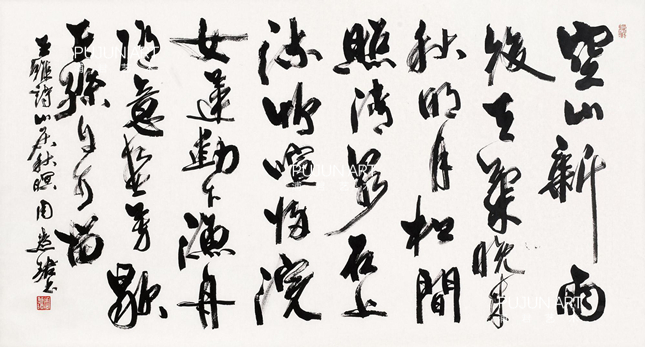 空山新雨
後天氣晚来
秋明月松間
照清泉石上
流竹喧歸浣
女蓮動下漁舟
随意春芳歇
王孫自可留
王維詩山居秋暝 周慧珺书
PUJUN ART
PUJUN ART
PUJUN ART